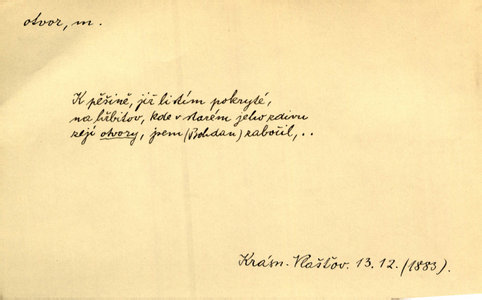 otvor, m.
K pěšině, již listím pokryté,
na hřbitov, kde v starém jeho zdivu
zejí otvory, jsem (Bohdan) zabočil, ..
Krásn. Vlašťov. 13. 12. (1883).